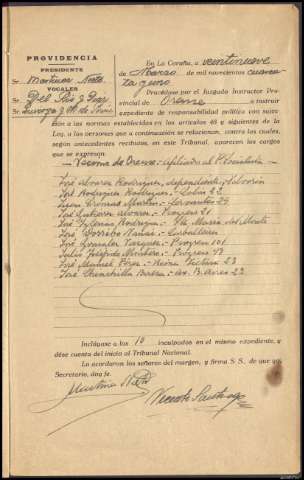 PROVIDENCIA
PRESIDENTE
Sr. Martinez Nieto
VOCALES
Sr. Del Rio y Diaz
Sr.
En La Coruña, a veintinueve
de Marzo de mil novecientos cuaren
ta y uno.
Procédase por el Juzgado Instructor Pro-
vincial de Orense a instruir
expediente de responsabilidad política con suje-
ción a las normas establecidas en los artículos 45 y siguientes de la
Ley, a las personas que a continuación se relacionan, contra las cuales,
según antecedentes recibidos, en este Tribunal, aparecen los cargos
que se expresan:
Vecinos de Orense - afiliados al
José Alvarez Rodriguez, dependiente,
José Rodriguez Rodriguez, Colón 22
Cervantes 29
José Gutierrez Alvarez - Progreso 21
José Iglesias Rodriguez - Sta. Maria del Monte
José - Caballeros
José Gonzalez - Progreso 101
Julio - Progreso 43
José Muñiel Pérez - Reina Victoria 23
José Chinchilla - av. B. Aires 22
Inclúyase a los 10 inculpados en el mismo expediente, y
dése cuenta del inicio al Tribunal Nacional.
Lo acordaron los señores del margen, y firma S. S. de que yo,
Secretario, doy fe.
Martinez Nieto
Vicente Santiago